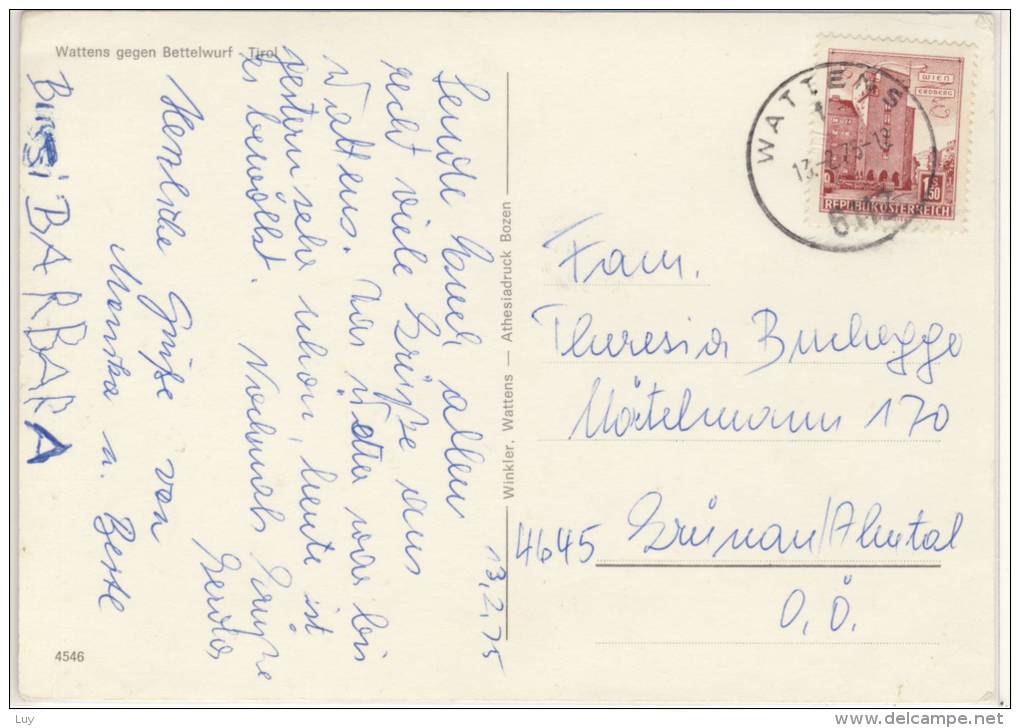 Wattens gegen Bettelwurf - Tirol
13.2.75
Sende Euch allen
recht viele Grüße aus
Wattens. Das Wetter war bis
gestern sehr schön, heute ist
es bewölkt. Nochmals
Gerda
Herzliche Grüße von
Monika u.
BUSSi BARBARA
4546
Winkler, Wattens — Athesiadruck Bozen
WATTENS
13.-2.75-18
6112
WIEN
ERDBERG
1.50
REPUBLIK ÖSTERREICH
Fam.
Theresia Buchegge
170
4645 Grünau/Almtal
O.Ö.
Luy
delcampe.net